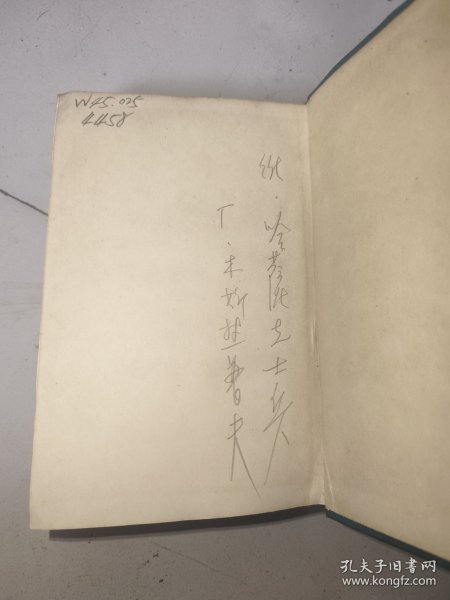 W45.025
4458
纵·哈萨克士兵
T·木斯塔普夫
孔夫子旧书网
www.kongfz.com